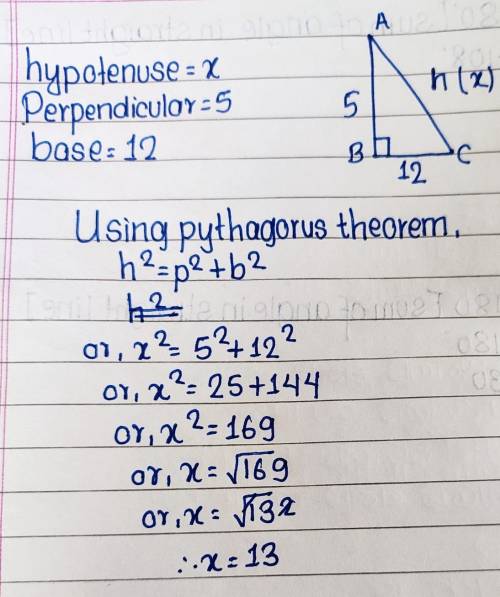 hypotenuse = x
Perpendicular = 5
base = 12
A
h (x)
5
B
C
12
Using pythagorus theorem,
h² = p² + b²
h² =
or, x² = 5² + 12²
or, x² = 25 + 144
or, x² = 169
or, x = √169
or, x = √13²
∴ x = 13